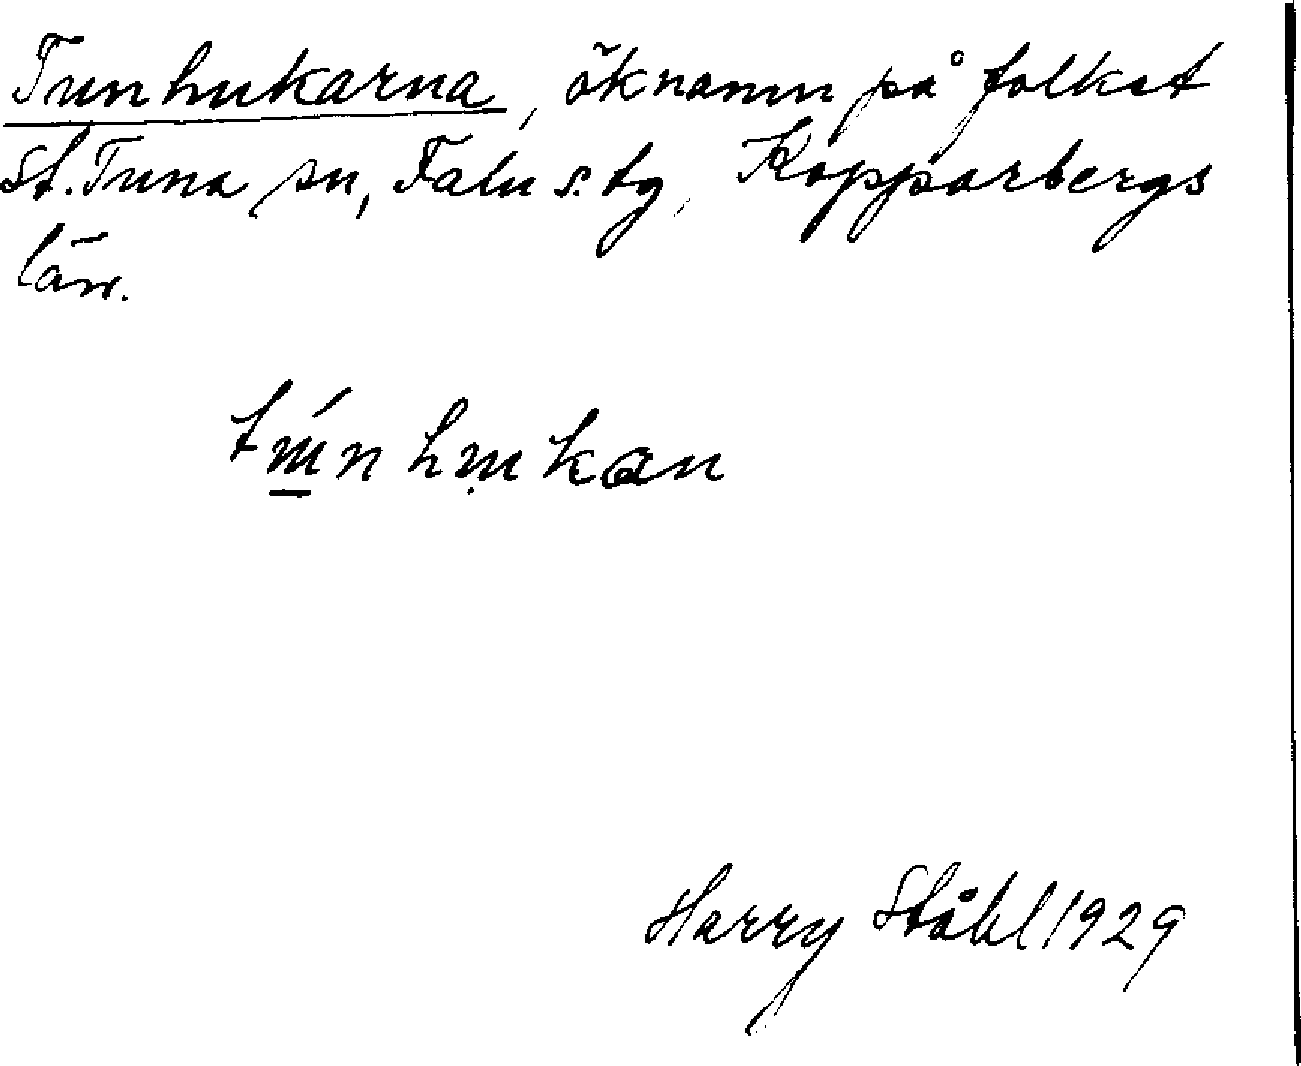 Tunhukarna, öknamn på folket
St. Tuna sn, Falu s. tg, Kopparbergs
län.
Harry Ståhl 1929